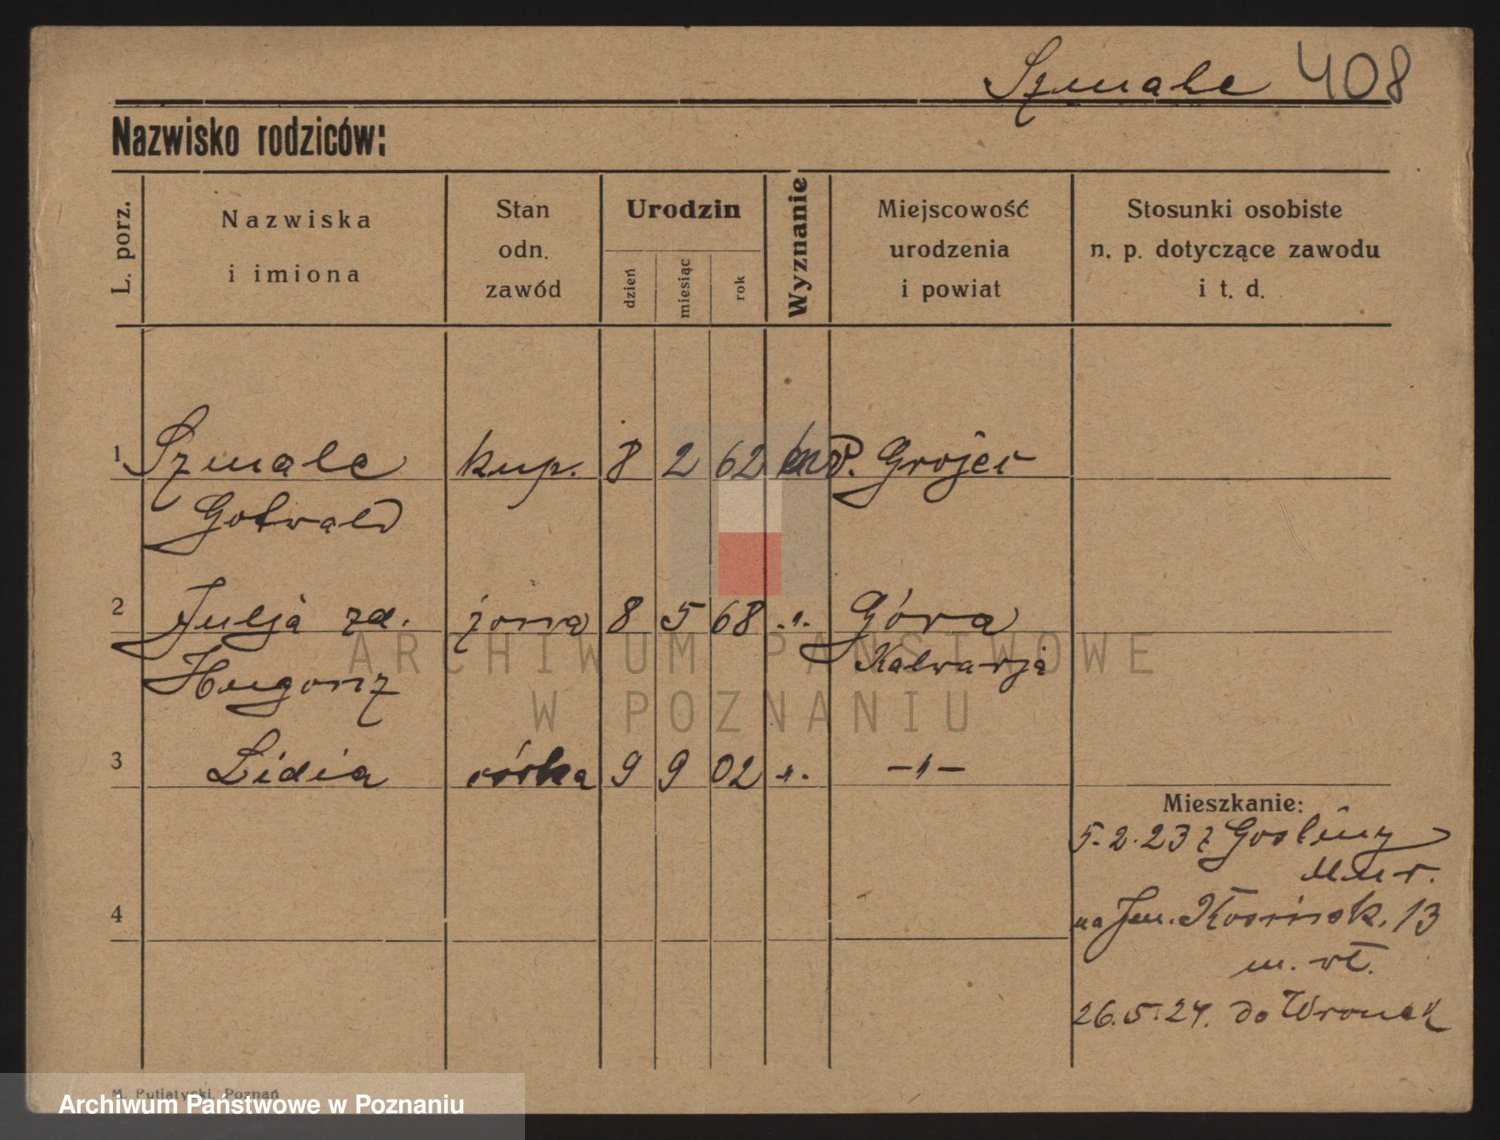 Szmalc 408
Nazwisko rodziców:
L. porz.
Nazwiska
i imiona
Stan
odn.
zawód
Urodzin
dzień
miesiąc
rok
Wyznanie
Miejscowość
urodzenia
i powiat
Stosunki osobiste
n. p. dotyczące zawodu
i t. d.
1 Szmalc kup. 8 2 62 P. Grojec
Gotwald
2 Julja zd. żona 8 5 68 -"- Góra
Kalwarja
3 Lidia córka 9 9 02 -"- -"-
Mieszkanie:
5.2.23 z Gośliny
Mur.
4
na Jen. 13
26.5.24. do Wronek
M. Putiatycki, Poznań
ARCHIWUM PAŃSTWOWE
W POZNANIU
Archiwum Państwowe w Poznaniu